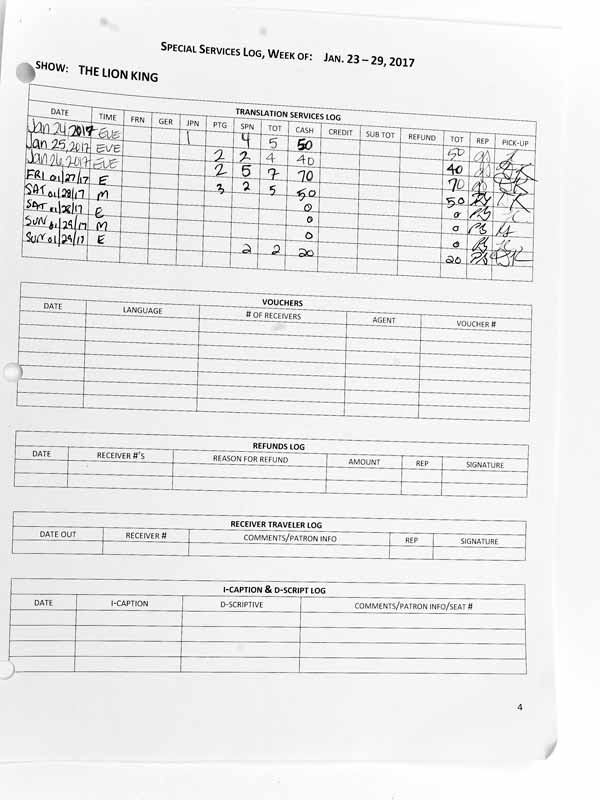 SPECIAL SERVICES LOG, WEEK OF: JAN. 23 – 29, 2017
SHOW: THE LION KING
TRANSLATION SERVICES LOG
DATE TIME FRN GER JPN PTG SPN TOT CASH CREDIT SUB TOT REFUND TOT REP PICK-UP
Jan 24, 2017 EVE 1 4 5 50 50
Jan 25, 2017 EVE 2 2 4 40 40
Jan 26, 2017 EVE 2 5 7 70 70
FRI 01/27/17 E 3 2 5 50 50
SAT 01/28/17 M 0 0
SAT 01/28/17 E 0 0
SUN 01/29/17 M 0 0
SUN 01/29/17 E 2 2 20 20
VOUCHERS
DATE LANGUAGE # OF RECEIVERS AGENT VOUCHER #
REFUNDS LOG
DATE RECEIVER #'S REASON FOR REFUND AMOUNT REP SIGNATURE
RECEIVER TRAVELER LOG
DATE OUT RECEIVER # COMMENTS/PATRON INFO REP SIGNATURE
I-CAPTION & D-SCRIPT LOG
DATE I-CAPTION D-SCRIPTIVE COMMENTS/PATRON INFO/SEAT #
4